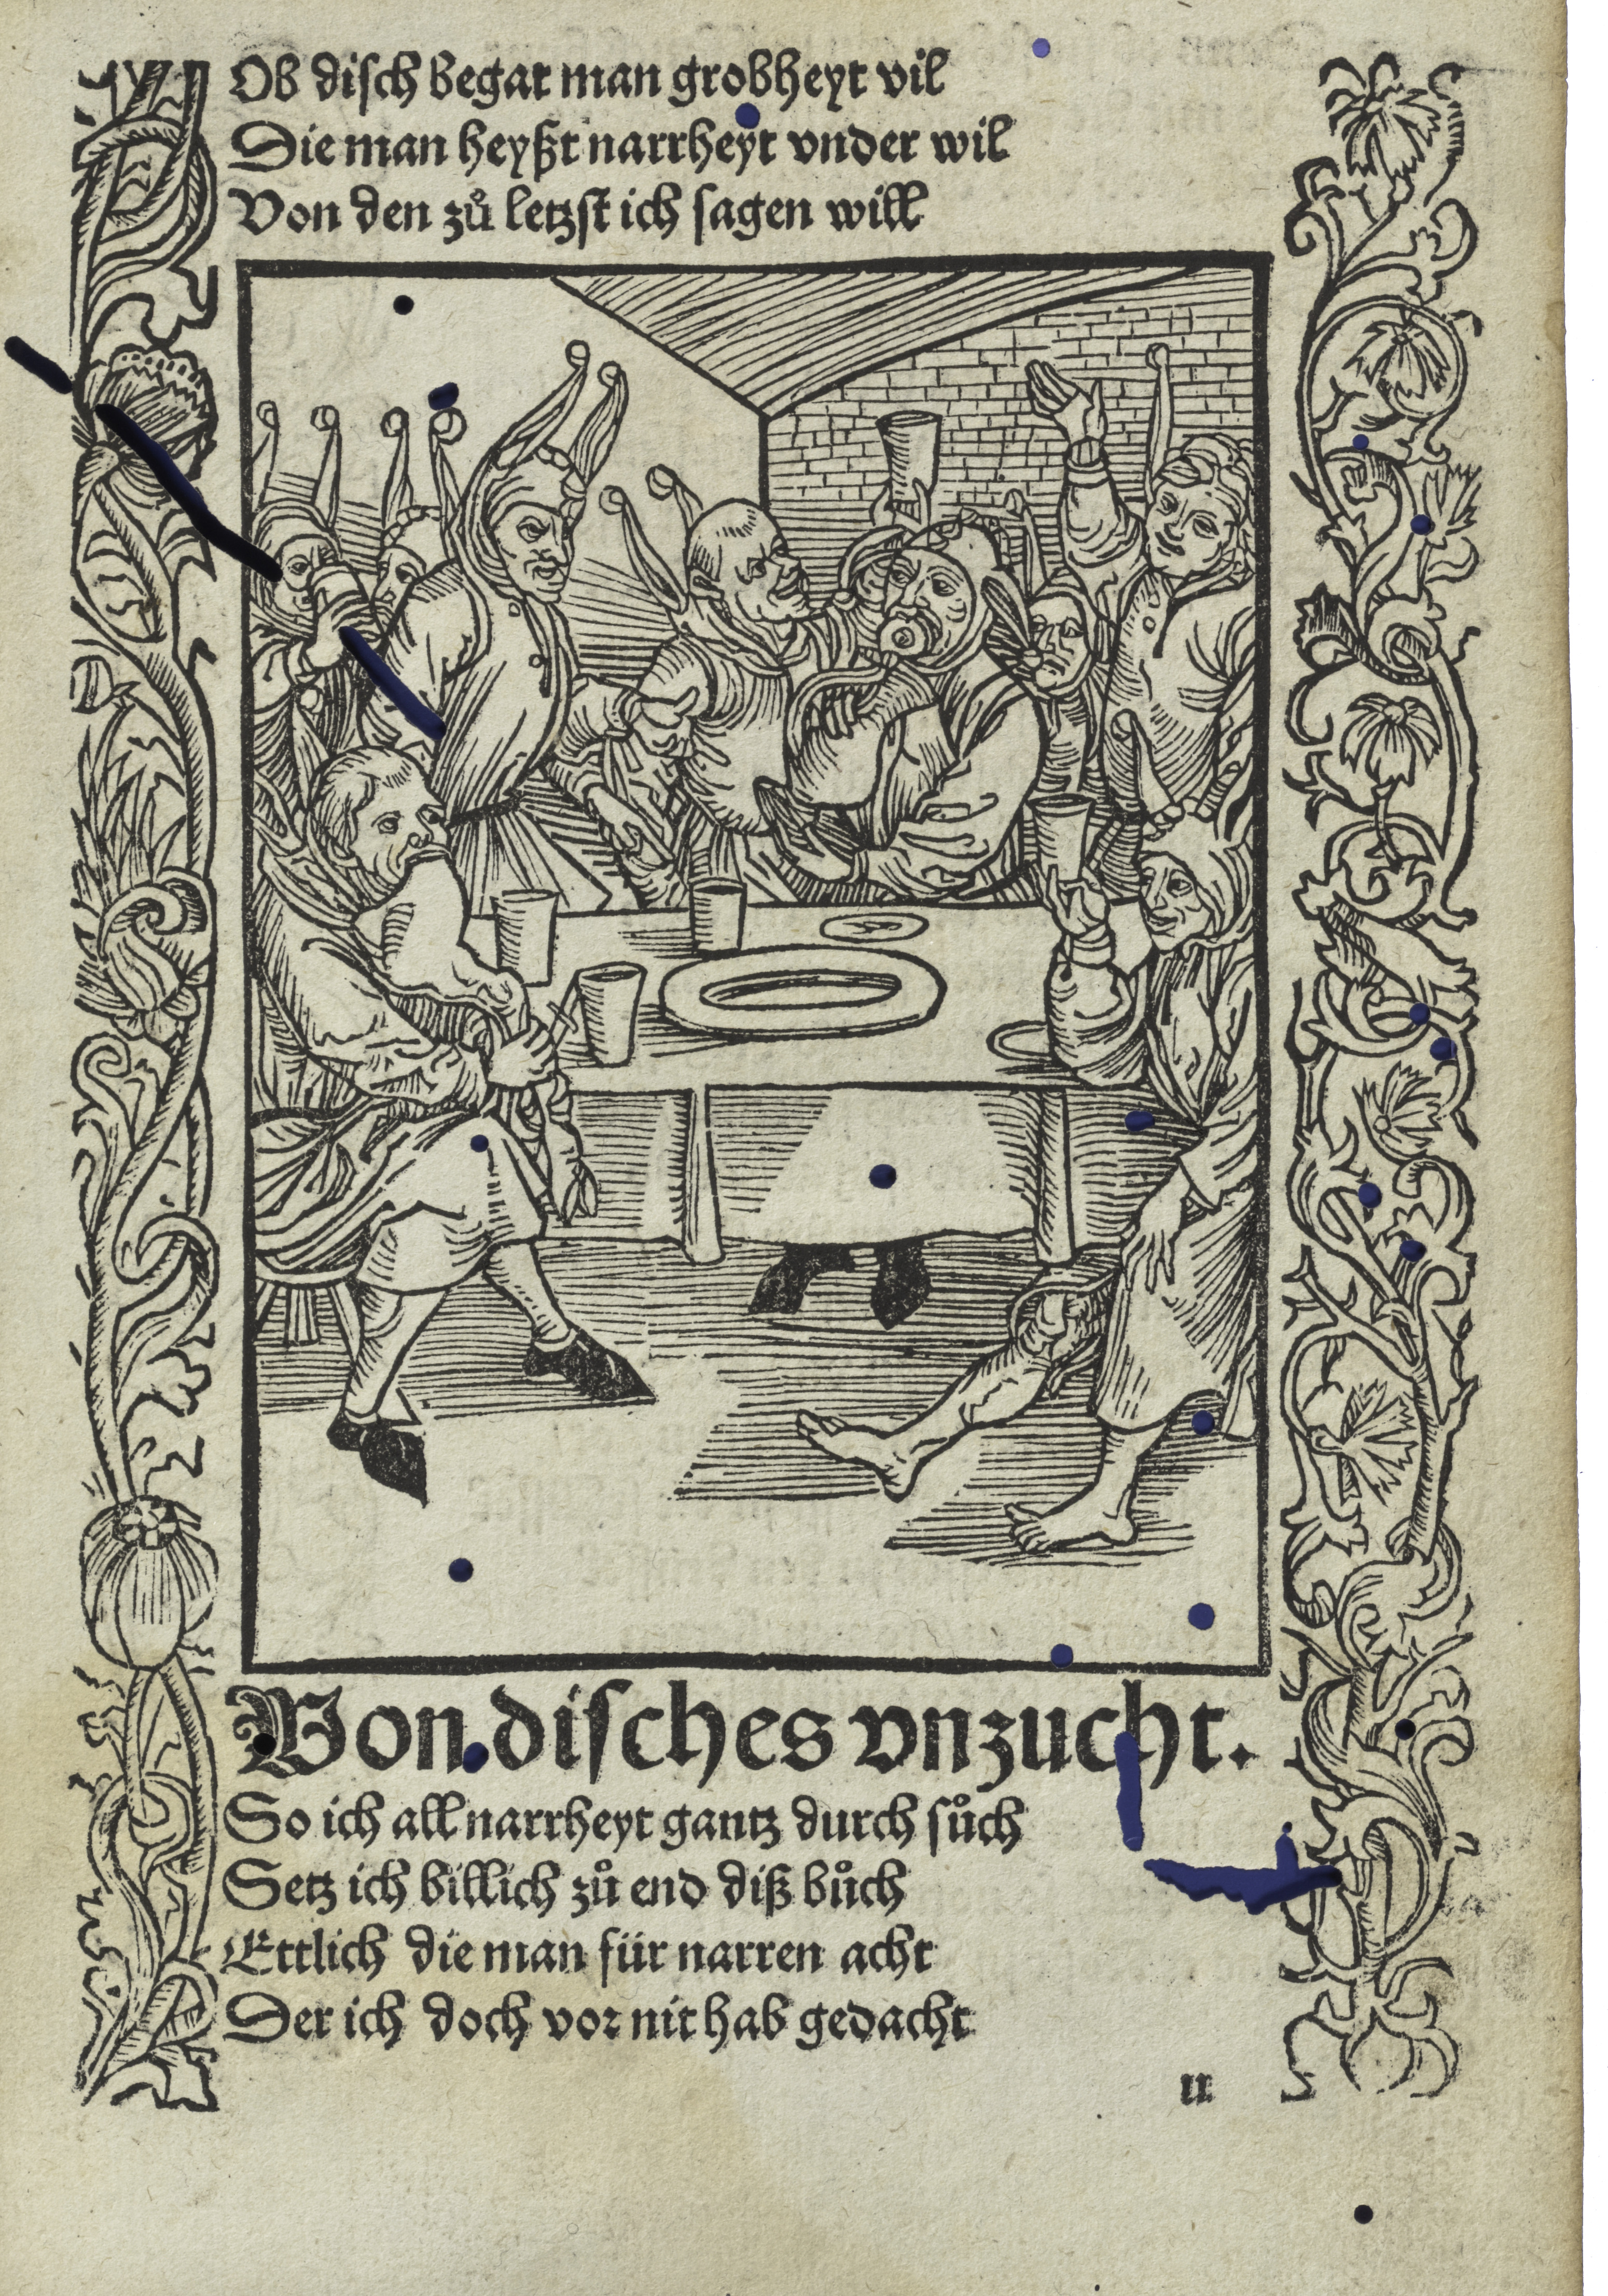 Ob disch begat man grobheyt vil
Die man heyßt narrheyt vnder wil
Von den zů letzst ich sagen will
Von disches vnzucht.
So ich all narrheyt gantz durch sůch
Setz ich billich zů end diß bůch
Ettlich die man für narren acht
Der ich doch vor nit hab gedacht
u